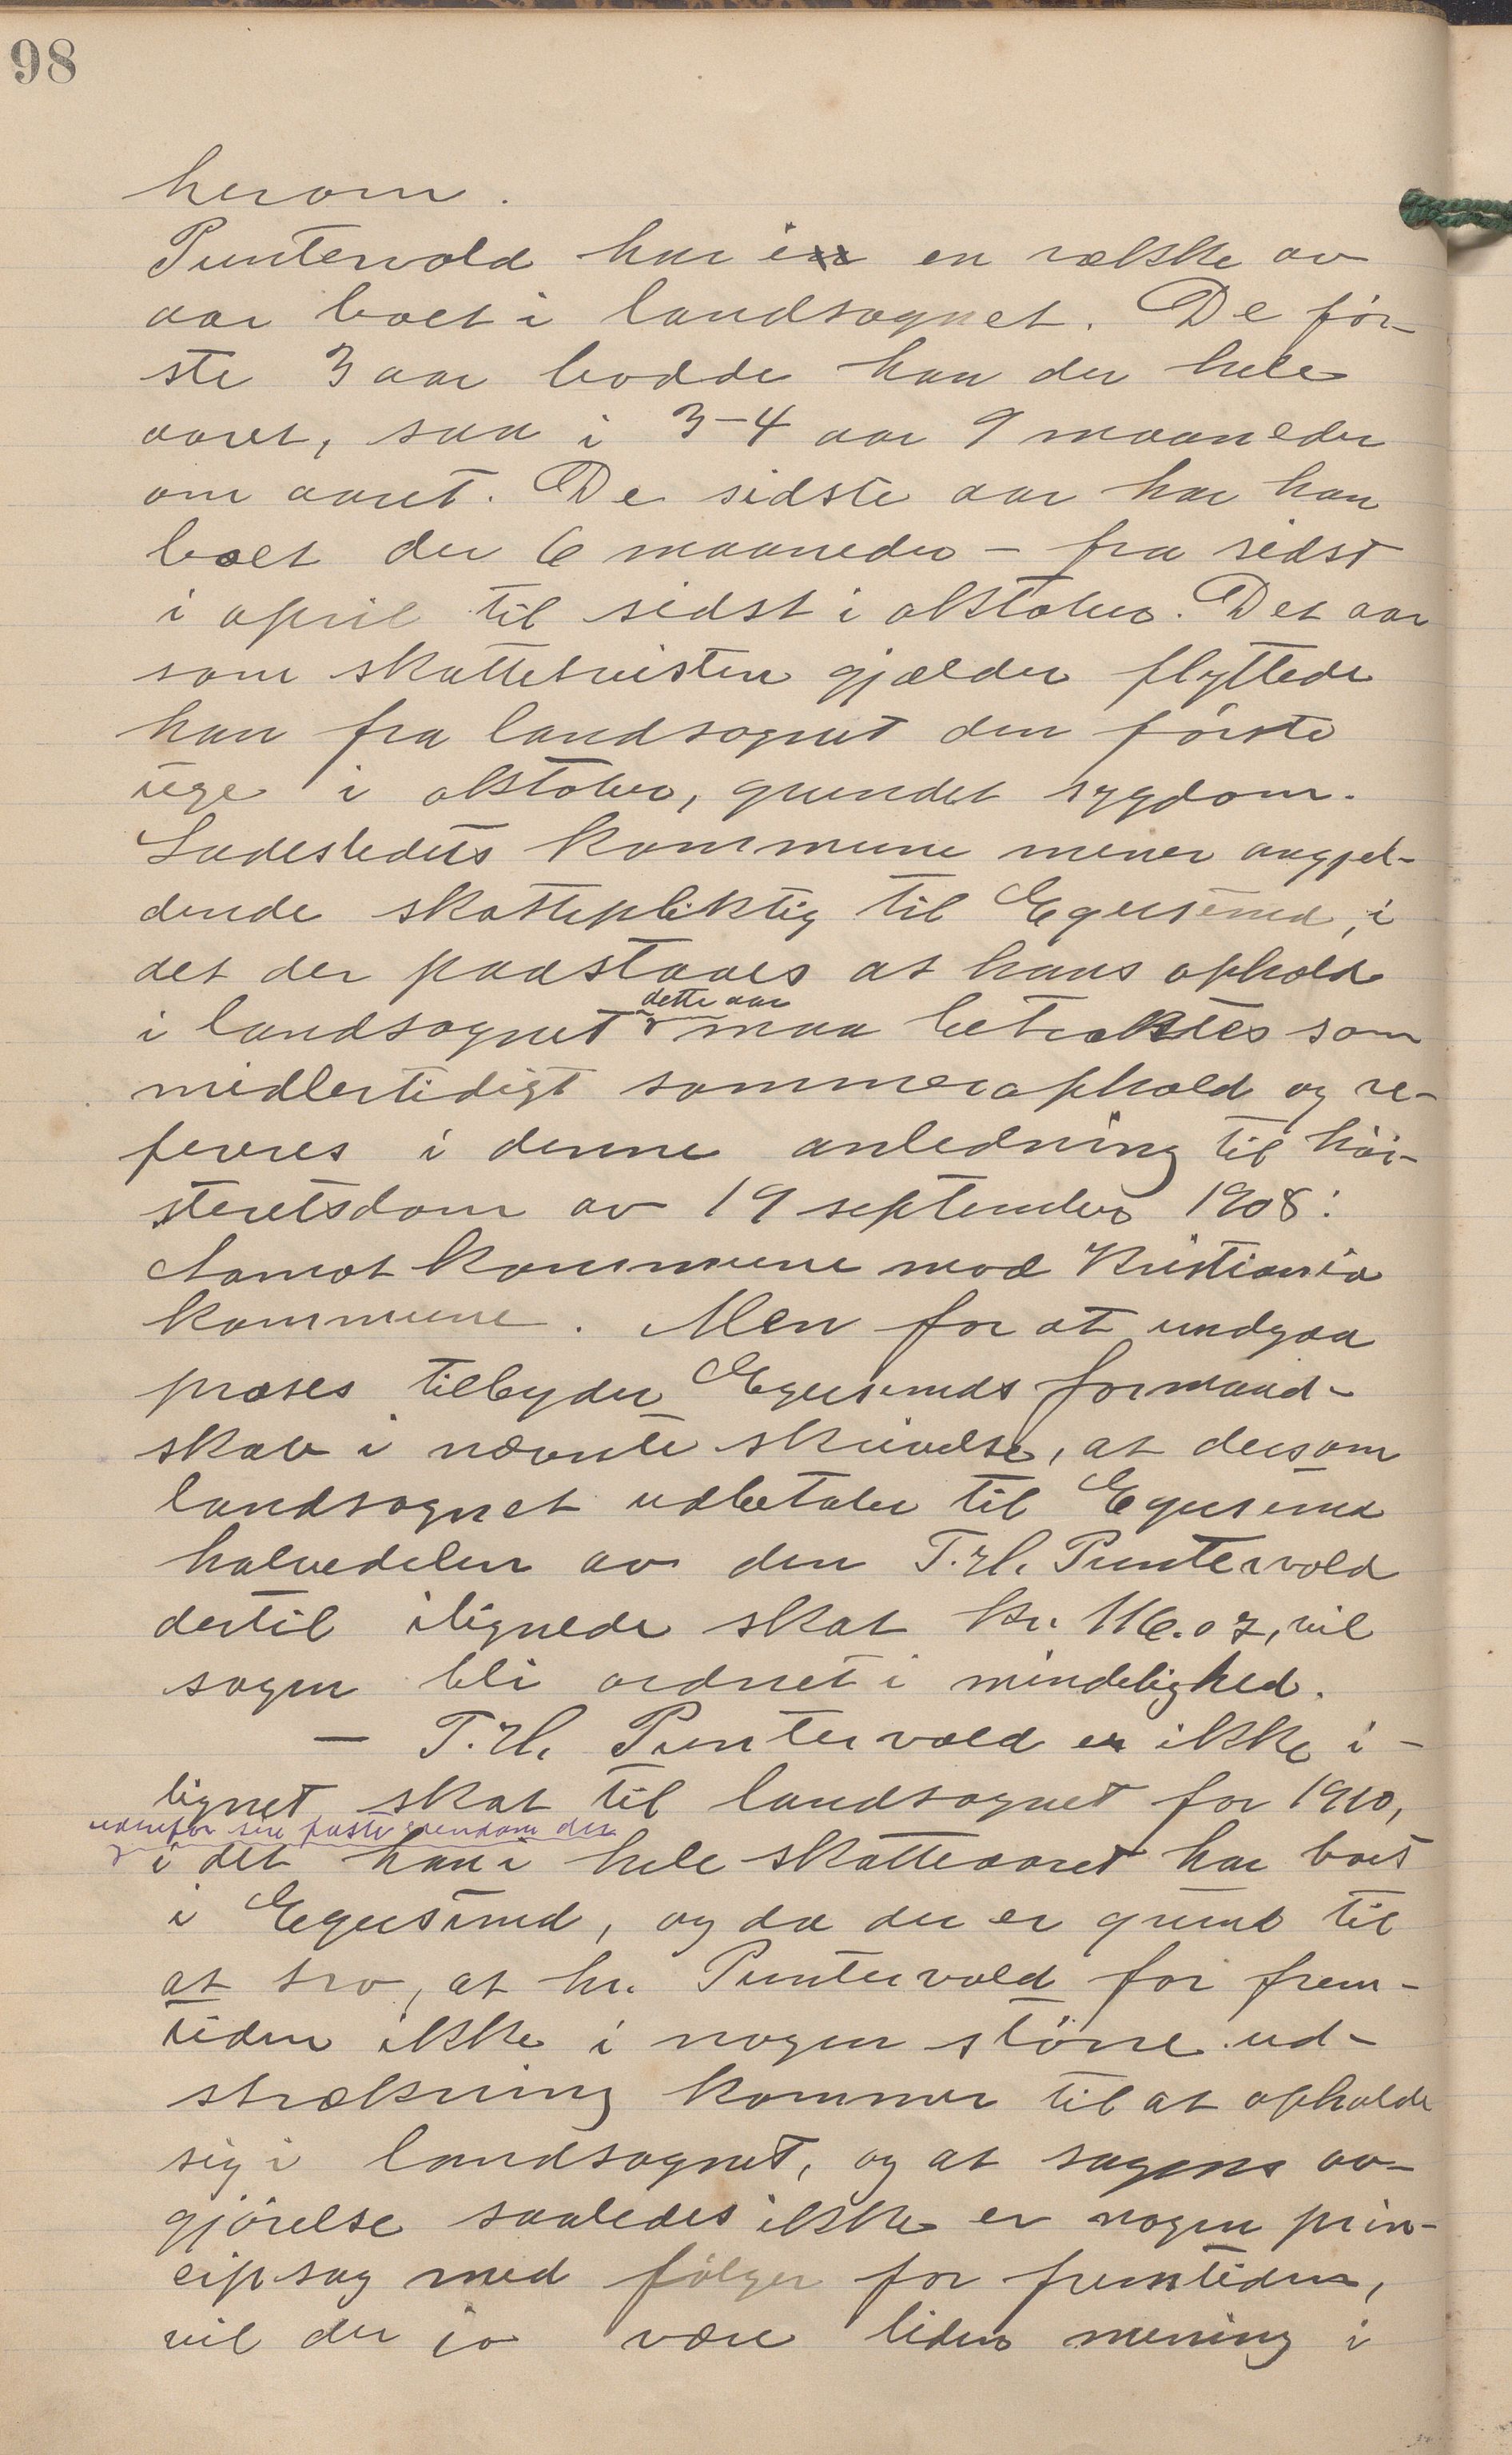 98
herom.
Puntervold har i en række av
aar boet i landsognet. De før-
ste 3 aar bodde han der hele
aaret, saa i 3-4 aar 9 maaneder
om aaret. De sidste aar har han
boet der 6 maaneder - fra sidst
i april til sidst i oktober. Det aar
som skattetvisten gjælder flyttede
han fra landsognet den første
uge i oktober, grundet sygdom.
Ladestedets kommune mener angjel-
dende skattepliktig til Egersund, i
det der paastaaes at hans ophold
dette aar
i landsognet maa betraktes som
midlertidigt sommerophold og re-
fereres i denne anledning til høi-
steretsdom av 19 september 1908:
Aamot kommune mod Kristiania
kommune. Men for at undgaa
proses tilbyder Egersunds formand-
skab i nævnte skrivelse, at dersom
landsognet udbetaler til Egersund
halvedelen av den T.H. Puntervold
dertil ilignede skat kr. 116.07, vil
sagen bli ordnet i mindelighed.
- T.H. Puntervold er ikke i-
lignet skat til landsognet for 1910,
udenfor sin faste eiendom der
i det han i hele skatteaaret har boet
i Egersund, og da der er grund til
at tro, at hr. Puntervold for frem-
tiden ikke i nogen større ud-
strækning kommer til at opholde
sig i landsognet, og at sagens av-
gjørelse saaledes ikke er nogen prin-
cipsag med følger for fremtiden,
vil der jo være liden mening i